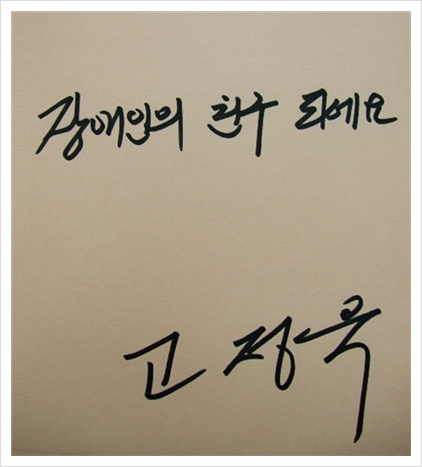 장애인의 친구 되에요
고정욱